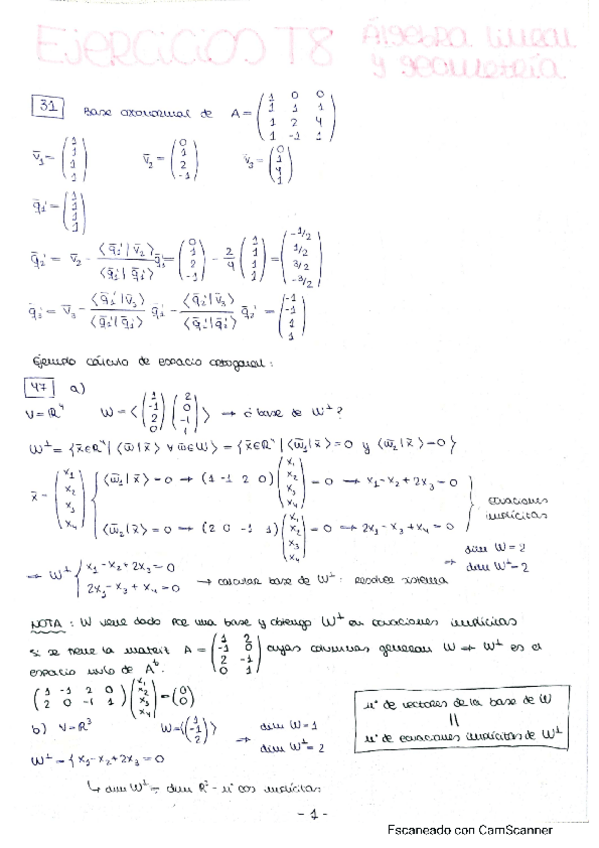 EJERCICIOS T8 Álgebra lineal y geometría
31 Base oxonormal de A = (1 0 0; 1 1 1; 1 2 4; 1 -1 1)
v̄₁ = (1; 1; 1; 1) v̄₂ = (0; 1; 2; -1) v̄₃ = (0; 1; 4; 1)
q̄₁' = (1; 1; 1; 1)
q̄₂' = v̄₂ - ⟨q̄₁'|v̄₂⟩/⟨q̄₁'|q̄₁'⟩ q̄₁' = (0; 1; 2; -1) - 2/4 (1; 1; 1; 1) = (-1/2; 1/2; 3/2; -3/2)
q̄₃' = v̄₃ - ⟨q̄₁'|v̄₃⟩/⟨q̄₁'|q̄₁'⟩ q̄₁' - ⟨q̄₂'|v̄₃⟩/⟨q̄₂'|q̄₂'⟩ q̄₂' = (-1; -1; 1; 1)
Ejemplo cálculo de espacio ortogonal:
47 a)
V = ℝ⁴ W = ⟨(1; -1; 2; 0) (2; 0; -1; 1)⟩ → ¿base de W⊥?
W⊥ = {x̄∈ℝ⁴ | ⟨w̄|x̄⟩ ∀ w̄∈W} = {x̄∈ℝ⁴ | ⟨w̄₁|x̄⟩ = 0 y ⟨w̄₂|x̄⟩ = 0}
x̄ = (x₁; x₂; x₃; x₄) { ⟨w̄₁|x̄⟩ = 0 → (1 -1 2 0) (x₁; x₂; x₃; x₄) = 0 → x₁ - x₂ + 2x₃ = 0
⟨w̄₂|x̄⟩ = 0 → (2 0 -1 1) (x₁; x₂; x₃; x₄) = 0 → 2x₁ - x₃ + x₄ = 0
ecuaciones
implícitas
→ W⊥ { x₁ - x₂ + 2x₃ = 0
2x₁ - x₃ + x₄ = 0 → calcular base de W⊥: resolver sistema
→ dim W = 2
dim W⊥ = 2
NOTA: W viene dado por una base y obtengo W⊥ en ecuaciones implícitas
si se tiene la matriz A = (1 2; -1 0; 2 -1; 0 1) cuyas columnas generan W → W⊥ es el
espacio nulo de Aᵗ.
(1 -1 2 0; 2 0 -1 1) (x₁; x₂; x₃; x₄) = (0; 0)
b) V = ℝ³ W = ⟨(1; -1; 2)⟩ → dim W = 1
dim W⊥ = 2
W⊥ = {x₁ - x₂ + 2x₃ = 0
↳ dim W⊥ = dim ℝ³ - nº ecs implícitas
nº de vectores de la base de W
||
nº de ecuaciones implícitas de W⊥
- 1 -
Escaneado con CamScanner